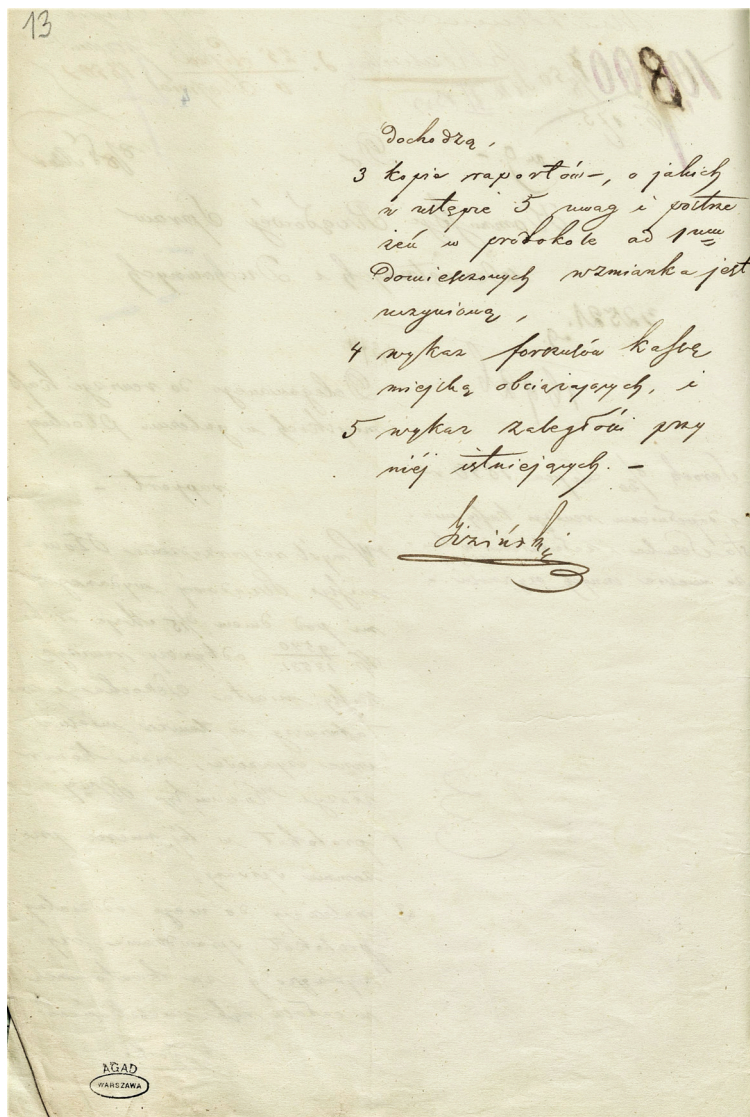 13
8
dochodzą,
3 kopie raportów, o jakich
w wstępie 5 uwag i postrze
żeń w protokole ad 1mum
domieszczonych wzmianka jest
uczynioną,
4 wykaz forszusów kassę
miejską obciążających, i
5 wykaz zaległości przy
niéj istniejących. –
AGAD
WARSZAWA